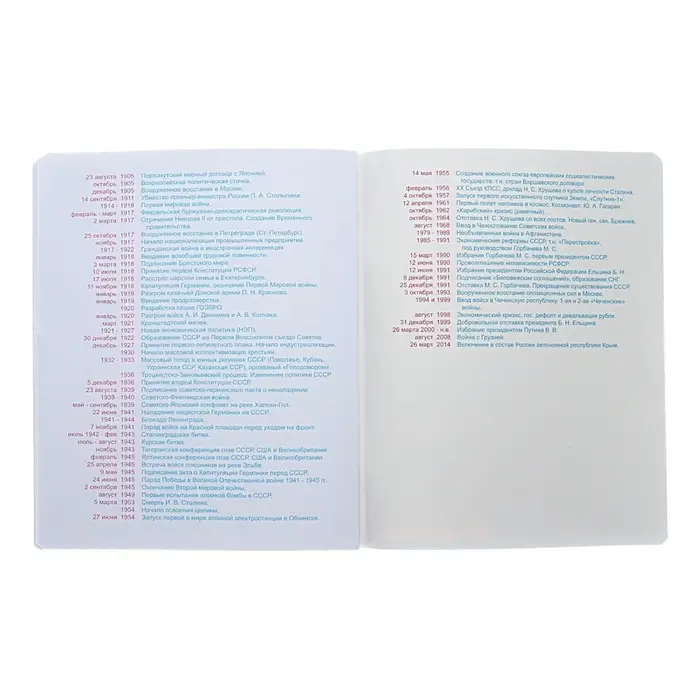 23 августа 1905 Портсмутский мирный договор с Японией.
октябрь 1905 Всероссийская политическая стачка.
декабрь 1905 Вооруженное восстание в Москве.
14 сентября 1911 Убийство премьер-министра России П. А. Столыпина.
1914 - 1918 Первая мировая война.
февраль - март 1917 Февральская буржуазно-демократическая революция.
2 марта 1917 Отречение Николая II от престола. Создание Временного
правительства.
25 октября 1917 Вооруженное восстание в Петрограде (Ст.-Петербург).
ноябрь 1917 Начало национализации промышленных предприятий.
1917 - 1922 Гражданская война и иностранная интервенция.
январь 1918 Введение всеобщей трудовой повинности.
3 марта 1918 Подписание Брестского мира.
10 июля 1918 Принятие первой Конституции РСФСР.
17 июля 1918 Расстрел царской семьи в Екатеринбурге.
11 ноября 1918 Капитуляция Германии, окончание Первой Мировой войны.
январь 1919 Разгром казачьей Донской армии П. Н. Краснова.
январь 1919 Введение продразверстки.
1920 Разработка плана ГОЭЛРО.
январь 1920 Разгром войск А. И. Деникина и А. В. Колчака.
март 1921 Кронштадтский мятеж.
1921 - 1927 Новая экономическая политика (НЭП).
30 декабря 1922 Образование СССР на Первом Всесоюзном съезде Советов.
декабрь 1927 Принятие первого пятилетнего плана. Начало индустриализации.
1930 Начало массовой коллективизации крестьян.
1932 - 1933 Массовый голод в южных регионах СССР (Поволжье, Кубань,
Украинская ССР, Казахская ССР), прозванный «Голодомором».
1936 Троцкистско-Зиновьевский процесс. Изменение политики СССР
5 декабря 1936 Принятие второй Конституции СССР.
23 августа 1939 Подписание советско-германского пакта о ненападении
1939 - 1940 Советско-Финляндская война.
май - сентябрь 1939 Советско-Японский конфликт на реке Халхин-Гол.
22 июня 1941 Нападение нацистской Германии на СССР.
1941 - 1944 Блокада Ленинграда.
7 ноября 1941 Парад войск на Красной площади перед уходом на фронт.
июль 1942 - фев 1943 Сталинградская битва.
июль - август 1943 Курская битва.
ноябрь 1943 Тегеранская конференция глав СССР, США и Великобритании
февраль 1945 Ялтинская конференция глав СССР, США и Великобритании.
25 апреля 1945 Встреча войск союзников на реке Эльбе.
9 мая 1945 Подписание акта о Капитуляции Германии перед СССР.
24 июня 1945 Парад Победы в Великой Отечественной войне 1941 - 1945 гг.
2 сентября 1945 Окончание Второй мировой войны.
август 1949 Первые испытания атомной бомбы в СССР.
5 марта 1953 Смерть И. В. Сталина.
1954 Начало освоения целины.
27 июня 1954 Запуск первой в мире атомной электростанции в Обнинске.
14 мая 1955 Создание военного союза европейских социалистических
государств, т.н. стран Варшавского договора.
февраль 1956 XX Съезд КПСС, доклад Н. С. Хрущева о культе личности Сталина.
4 октября 1957 Запуск первого искусственного спутника Земли, «Спутник-1».
12 апреля 1961 Первый полет человека в космос. Космонавт: Ю. А. Гагарин
октябрь 1962 «Карибский» кризис (ракетный).
октябрь 1964 Отставка Н. С. Хрущева со всех постов. Новый ген. сек. Брежнев.
август 1968 Ввод в Чехословакию Советских войск.
1979 - 1989 Необъявленная война в Афганистане.
1985 - 1991 Экономические реформы СССР, т.н. «Перестройка»,
под руководством Горбачева М. С.
15 март 1990 Избрание Горбачева М. С. первым президентом СССР.
12 июня 1990 Провозглашение независимости РСФСР.
12 июня 1991 Избрание президентом Российской Федерации Ельцина Б. Н.
8 декабря 1991 Подписание «Беловежских соглашений», образование СНГ
25 декабря 1991 Отставка М. С. Горбачева. Прекращение существования СССР.
3 октября 1993 Вооруженное восстание оппозиционных сил в Москве.
1994 и 1999 Ввод войск в Чеченскую республику. 1-ая и 2-ая «Чеченские»
войны.
август 1998 Экономический кризис, гос. дефолт и девальвация рубля.
31 декабря 1999 Добровольная отставка президента Б. Н. Ельцина.
26 марта 2000 - н.в. Избрание президентом Путина В. В.
август 2008 Война с Грузией.
26 март. 2014 Включение в состав России автономной республики Крым.